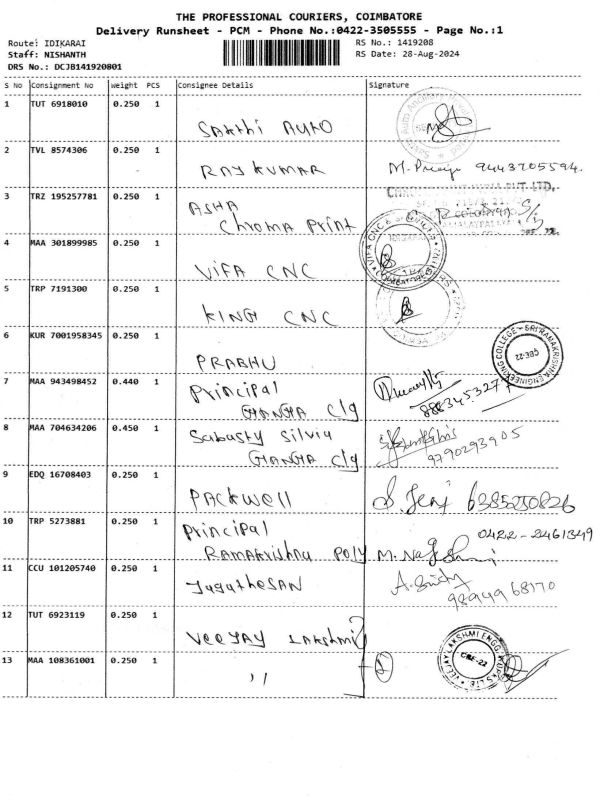 THE PROFESSIONAL COURIERS, COIMBATORE
Delivery Runsheet - PCM - Phone No.:0422-3505555 - Page No.:1
Route: IDIKARAI
RS No.: 1419208
Staff: NISHANTH
RS Date: 28-Aug-2024
DRS No.: DCJB141920801
S No Consignment No Weight PCS Consignee Details Signature
1 TUT 6918010 0.250 1
SAKthi AUTO
2 TVL 8574306 0.250 1
RAJ KUMAR M. 9443705594.
3 TRZ 195257781 0.250 1
ASHA
Chroma Print
4 MAA 301899985 0.250 1
VIFA CNC
5 TRP 7191300 0.250 1
KING CNC
6 KUR 7001958345 0.250 1
PRABHU
ENGINEERING COLLEGE - SRI RAMAKRISHNA
CBE-22
7 MAA 943498452 0.440 1
Principal
GANGA Clg
8883453277
8 MAA 704634206 0.450 1
Sabasty Silvia
GANGA Clg
9790293905
9 EDQ 16708403 0.250 1
PACKWell S. Jenj 6385250826
10 TRP 5273881 0.250 1
Principal 0422-2461349
RAMAKrishna Poly
11 CCU 101205740 0.250 1
Jagathesan
9894968170
12 TUT 6923119 0.250 1
VEEJAY LAKshmi
VEEJAY LAKSHMI ENGG. WORKS LTD.
CBE-22
13 MAA 108361001 0.250 1
,,